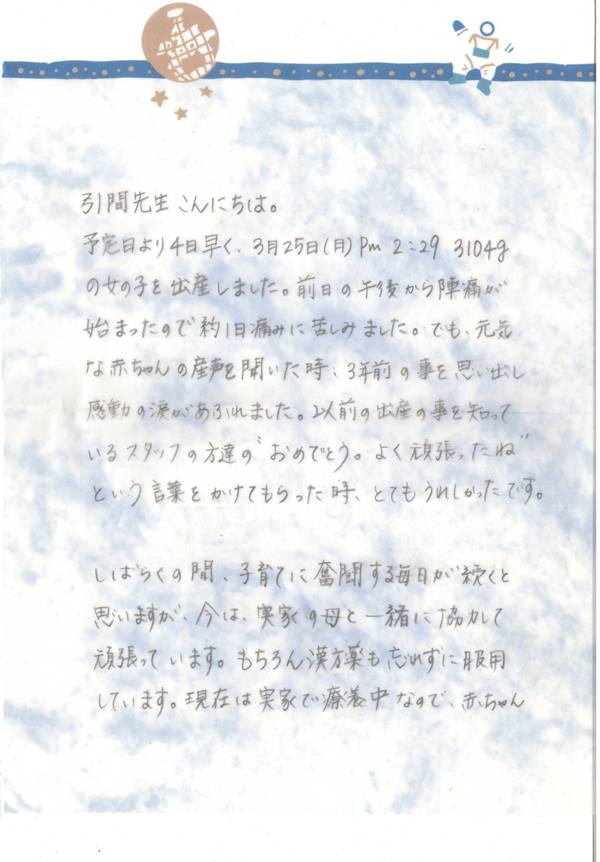 引間先生こんにちは。
予定日より4日早く、3月25日(月)Pm 2:29 3104g
の女の子を出産しました。前日の午後から陣痛が
始まったので約1日痛みに苦しみました。でも、元気
な赤ちゃんの産声を聞いた時、3年前の事を思い出し
感動の涙があふれました。以前の出産の事を知って
いるスタッフの方達の"おめでとう。よく頑張ったね"
という言葉をかけてもらった時、とてもうれしかったです。
しばらくの間、子育てに奮闘する毎日が続くと
思いますが、今は、実家の母と一緒に協力して
頑張っています。もちろん漢方薬も忘れずに服用
しています。現在は実家で療養中なので、赤ちゃん